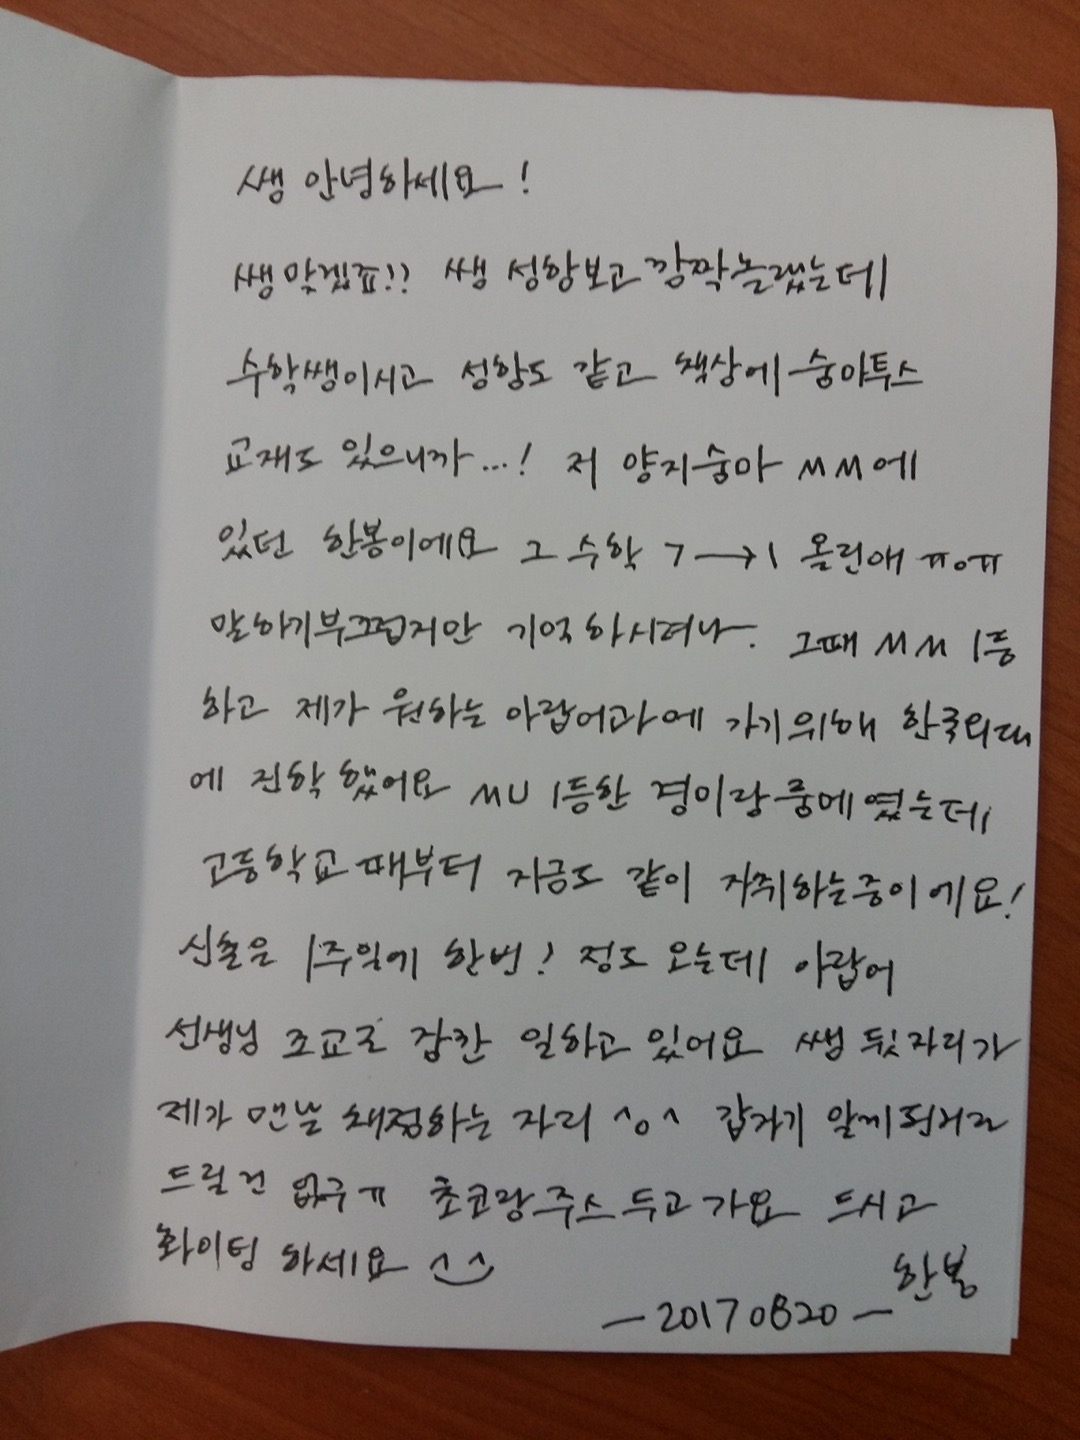 쌤 안녕하세요!
쌤맞겠죠!? 쌤 성함보고 깜짝놀랬는데
수학쌤이시고 성함도 같고 책상에 숭마투스
교재도 있으니까...! 저 양지숭마 MM에
있던 한봉이에요 그 수학 7→1 올린애 ㅠㅇㅠ
말하기부끄럽지만 기억하시려나. 그때 MM 1등
하고 제가 원하는 아랍어과에 가기위해 한국외대
에 진학했어요 MU 1등한 경이랑 룸메였는데
고등학교때부터 지금도 같이 자취하는중이에요!
신촌은 1주일에 한번! 정도 오는데 아랍어
선생님 조교로 잠깐 일하고 있어요 쌤 뒷자리가
제가 맨날 채점하는 자리 ^o^ 갑자기 알게된거라
드릴건 없구ㅠ 초코랑주스두고가요 드시고
화이팅 하세요 ^^
한봉
-20170820-